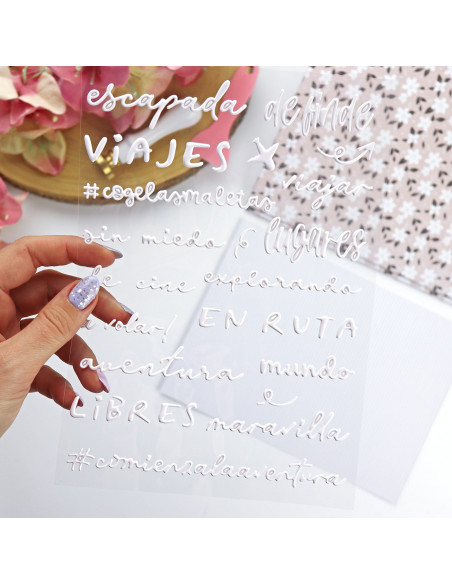 escapada de finde
VIAJES
#cogelasmaletas viajar
sin miedo y lugares
de cine explorando
a volar! EN RUTA
aventura mundo
e
LiBRES maravilla
#comienzalaaventura